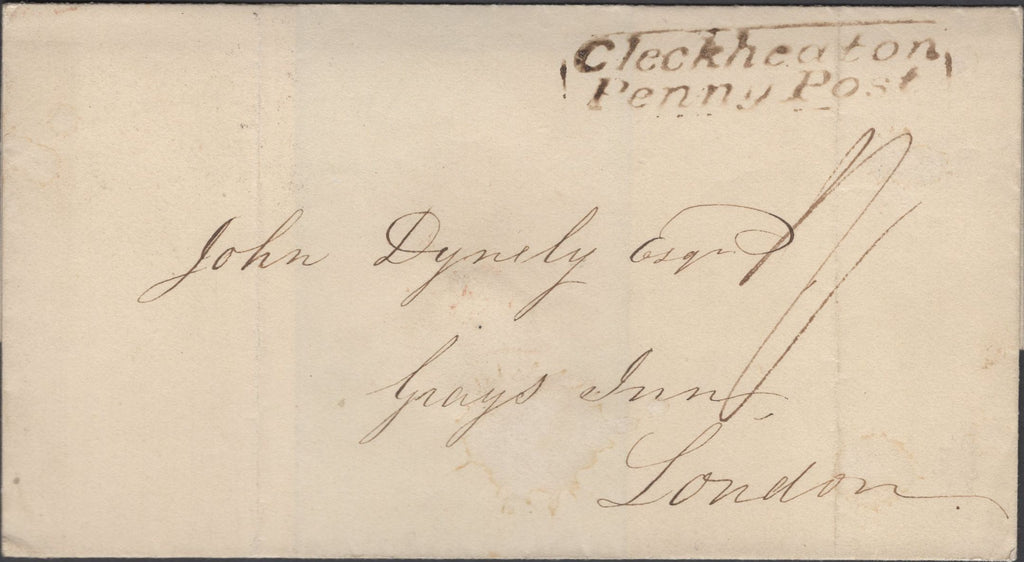 Cleckheaton
Penny Post
John Dynely Esqr
Grays Inn,
London